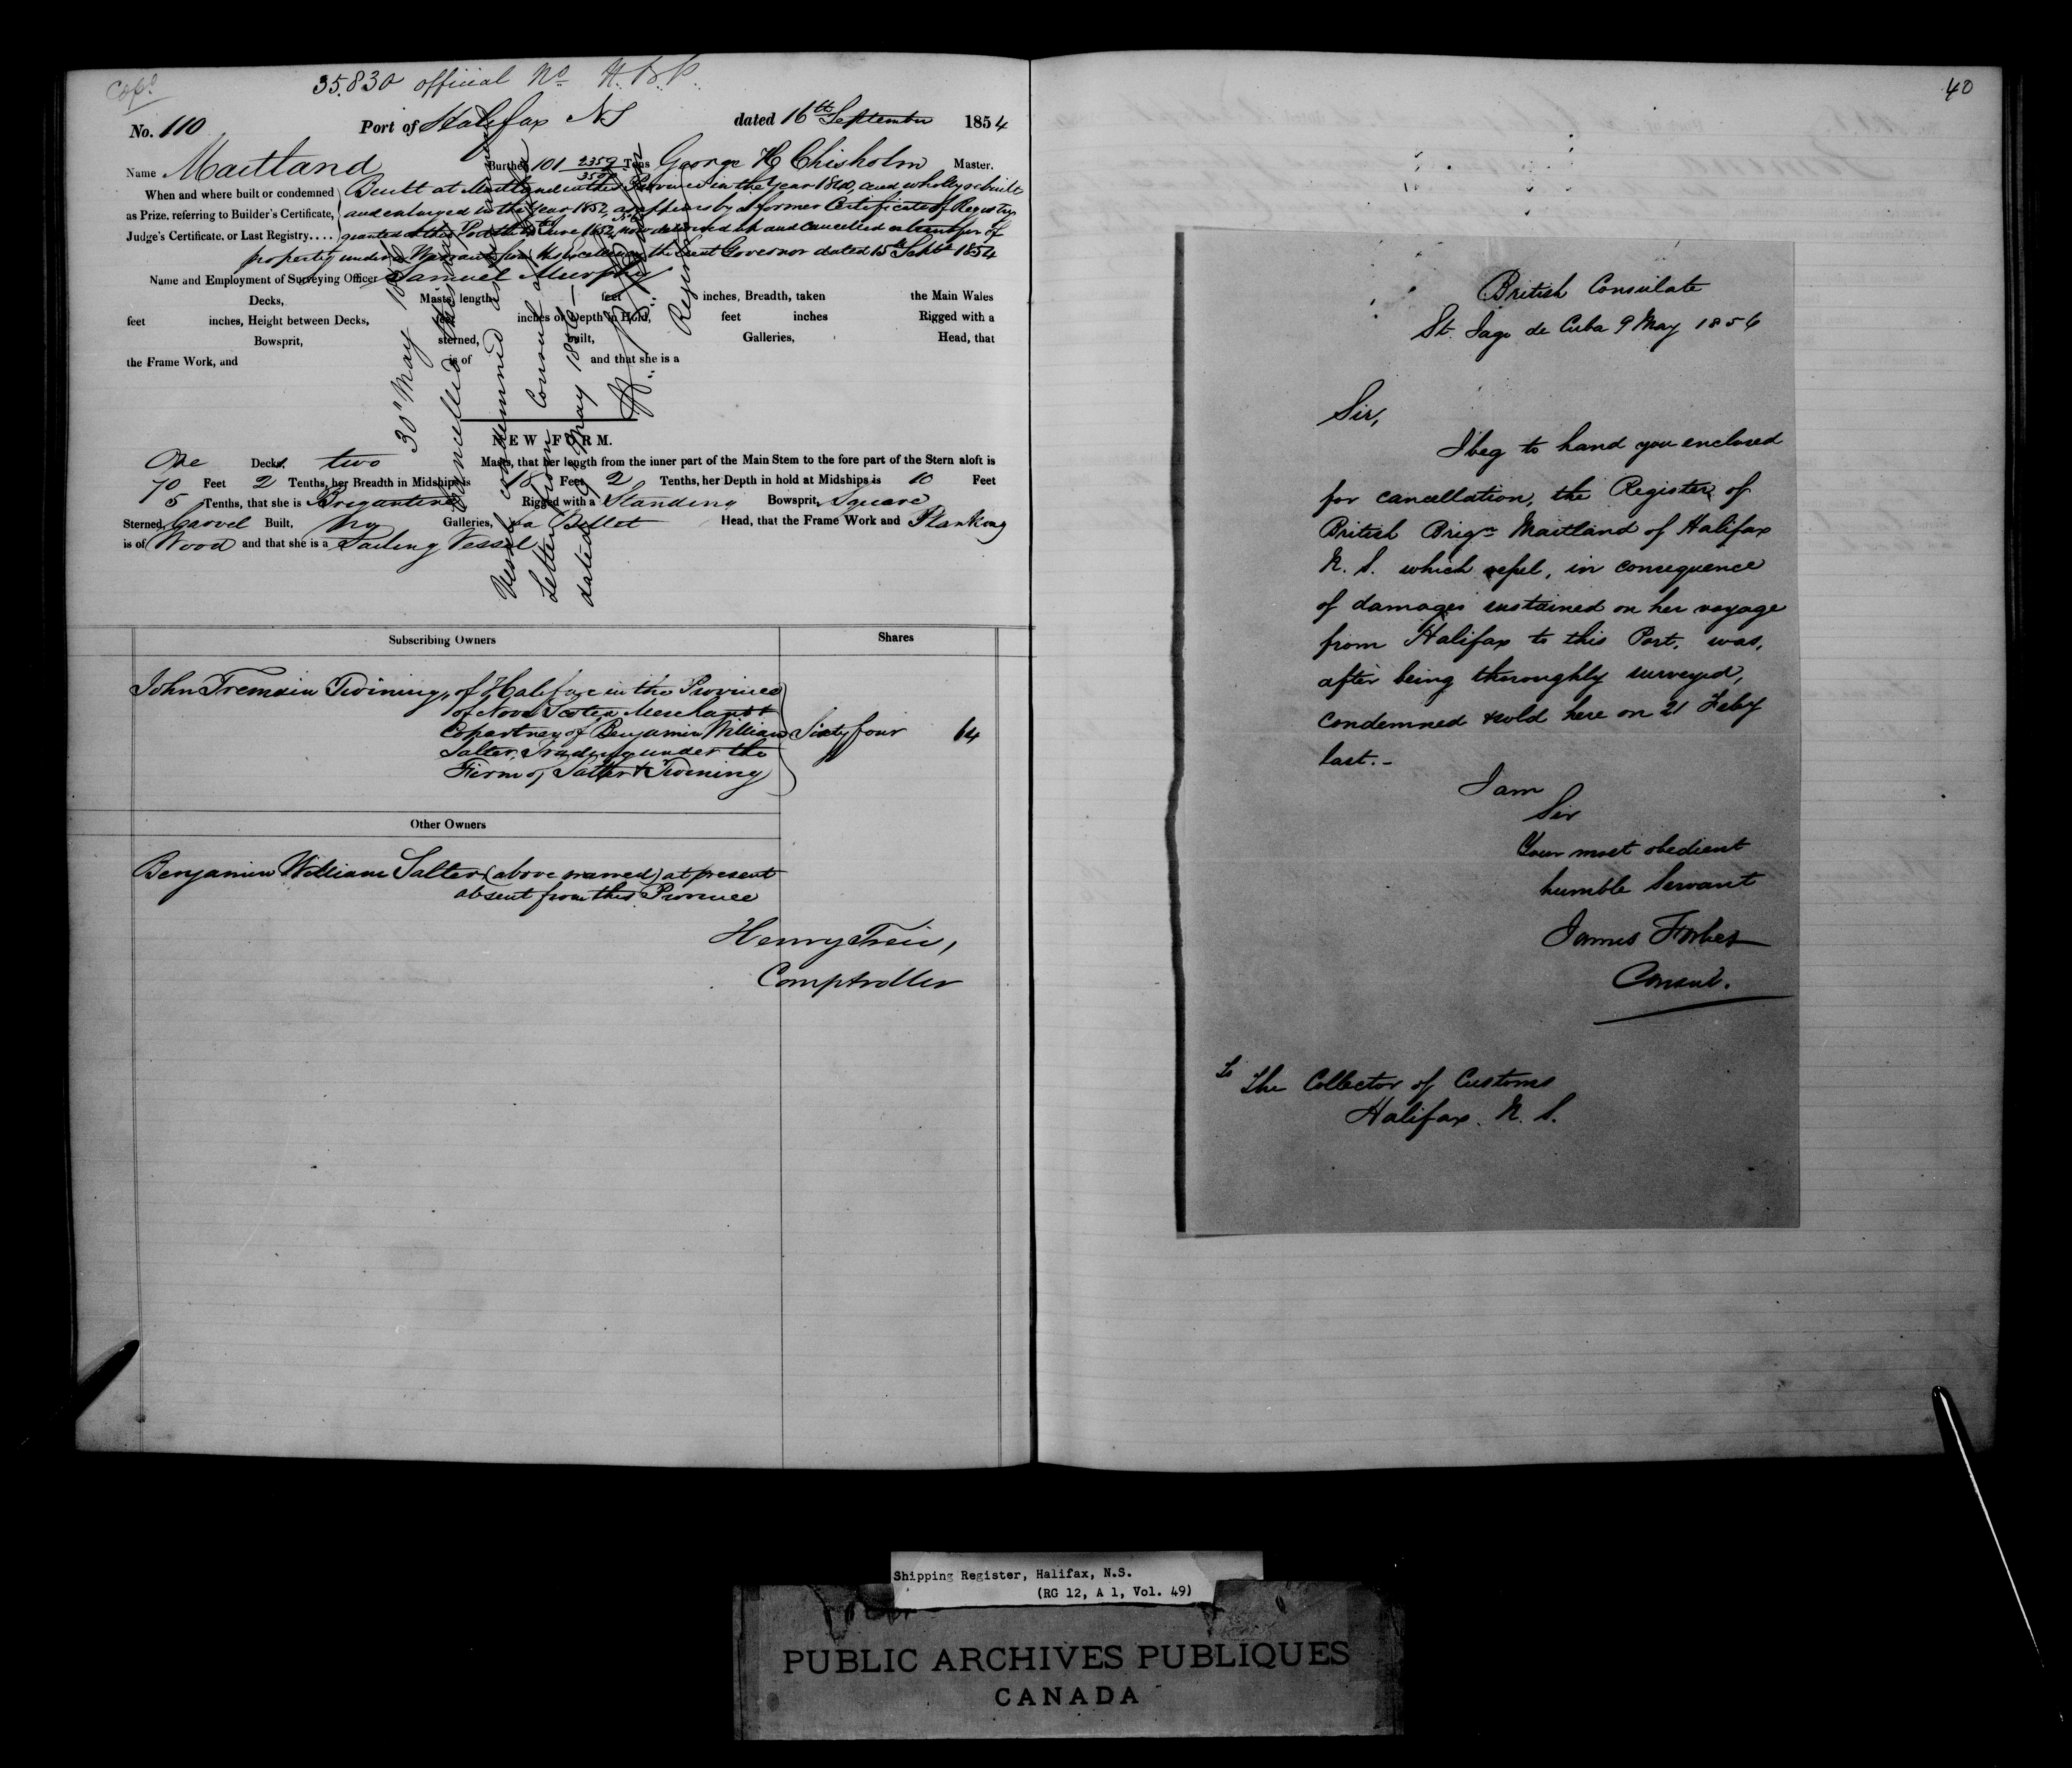 Cop^d
35.830 official No H.B.P.
No. 110 Port of Halifax NS dated 16th September 1854
Name Maitland Burthen 101 2359/3500 Tons George H Chisholm Master.
When and where built or condemned Built at Maitland in this Province in the Year 1840, and wholly rebuilt
as Prize, referring to Builder's Certificate, and enlarged in the Year 1852, as appears by a former Certificate of Registry
Judge's Certificate, or Last Registry.... granted at this Port the June 1852, now delivered up and cancelled on transfer of
property under a Warrant from His Excellency the Lieut Governor dated 15th Septr 1854
Name and Employment of Surveying Officer Samuel Murphy
Decks, Masts, length feet inches, Breadth, taken the Main Wales
feet inches, Height between Decks, feet inches or Depth in Hold, feet inches Rigged with a
Bowsprit, sterned, built, Galleries, Head, that
the Frame Work, and is of and that she is a
30th May
Cancelled this
Vessel condemned
Letter from Consul
dated 9 May 1856
Registrar
NEW FORM.
One Decks, two Masts, that her length from the inner part of the Main Stem to the fore part of the Stern aloft is
70 Feet 2 Tenths, her Breadth in Midships is 18 Feet 2 Tenths, her Depth in hold at Midships is 10 Feet
5 Tenths, that she is Brigantine Rigged with a Standing Bowsprit, Square
Sterned, Carvel Built, No Galleries, a Billet Head, that the Frame Work and Planking
is of Wood and that she is a Sailing Vessel
Subscribing Owners Shares
John Tremain Twining, of Halifax in the Province
of Nova Scotia Merchant
Copartner of Benjamin William Sixty four 64
Salter, Trading under the
Firm of Salter & Twining
Other Owners
Benjamin William Salter (above named) at present
absent from this Province
Henry Trew,
Comptroller
40
British Consulate
St. Jago de Cuba 9 May 1856
Sir,
I beg to hand you enclosed
for cancellation, the Register of
British Brign Maitland of Halifax
N. S. which vessel, in consequence
of damages sustained on her voyage
from Halifax to this Port, was,
after being thoroughly surveyed,
condemned & sold here on 21 Feby
last.-
I am
Sir
Your most obedient
humble Servant
James Forbes
Consul.
To The Collector of Customs
Halifax. N. S.
Shipping Register, Halifax, N.S.
(RG 12, A 1, Vol. 49)
PUBLIC ARCHIVES PUBLIQUES
CANADA